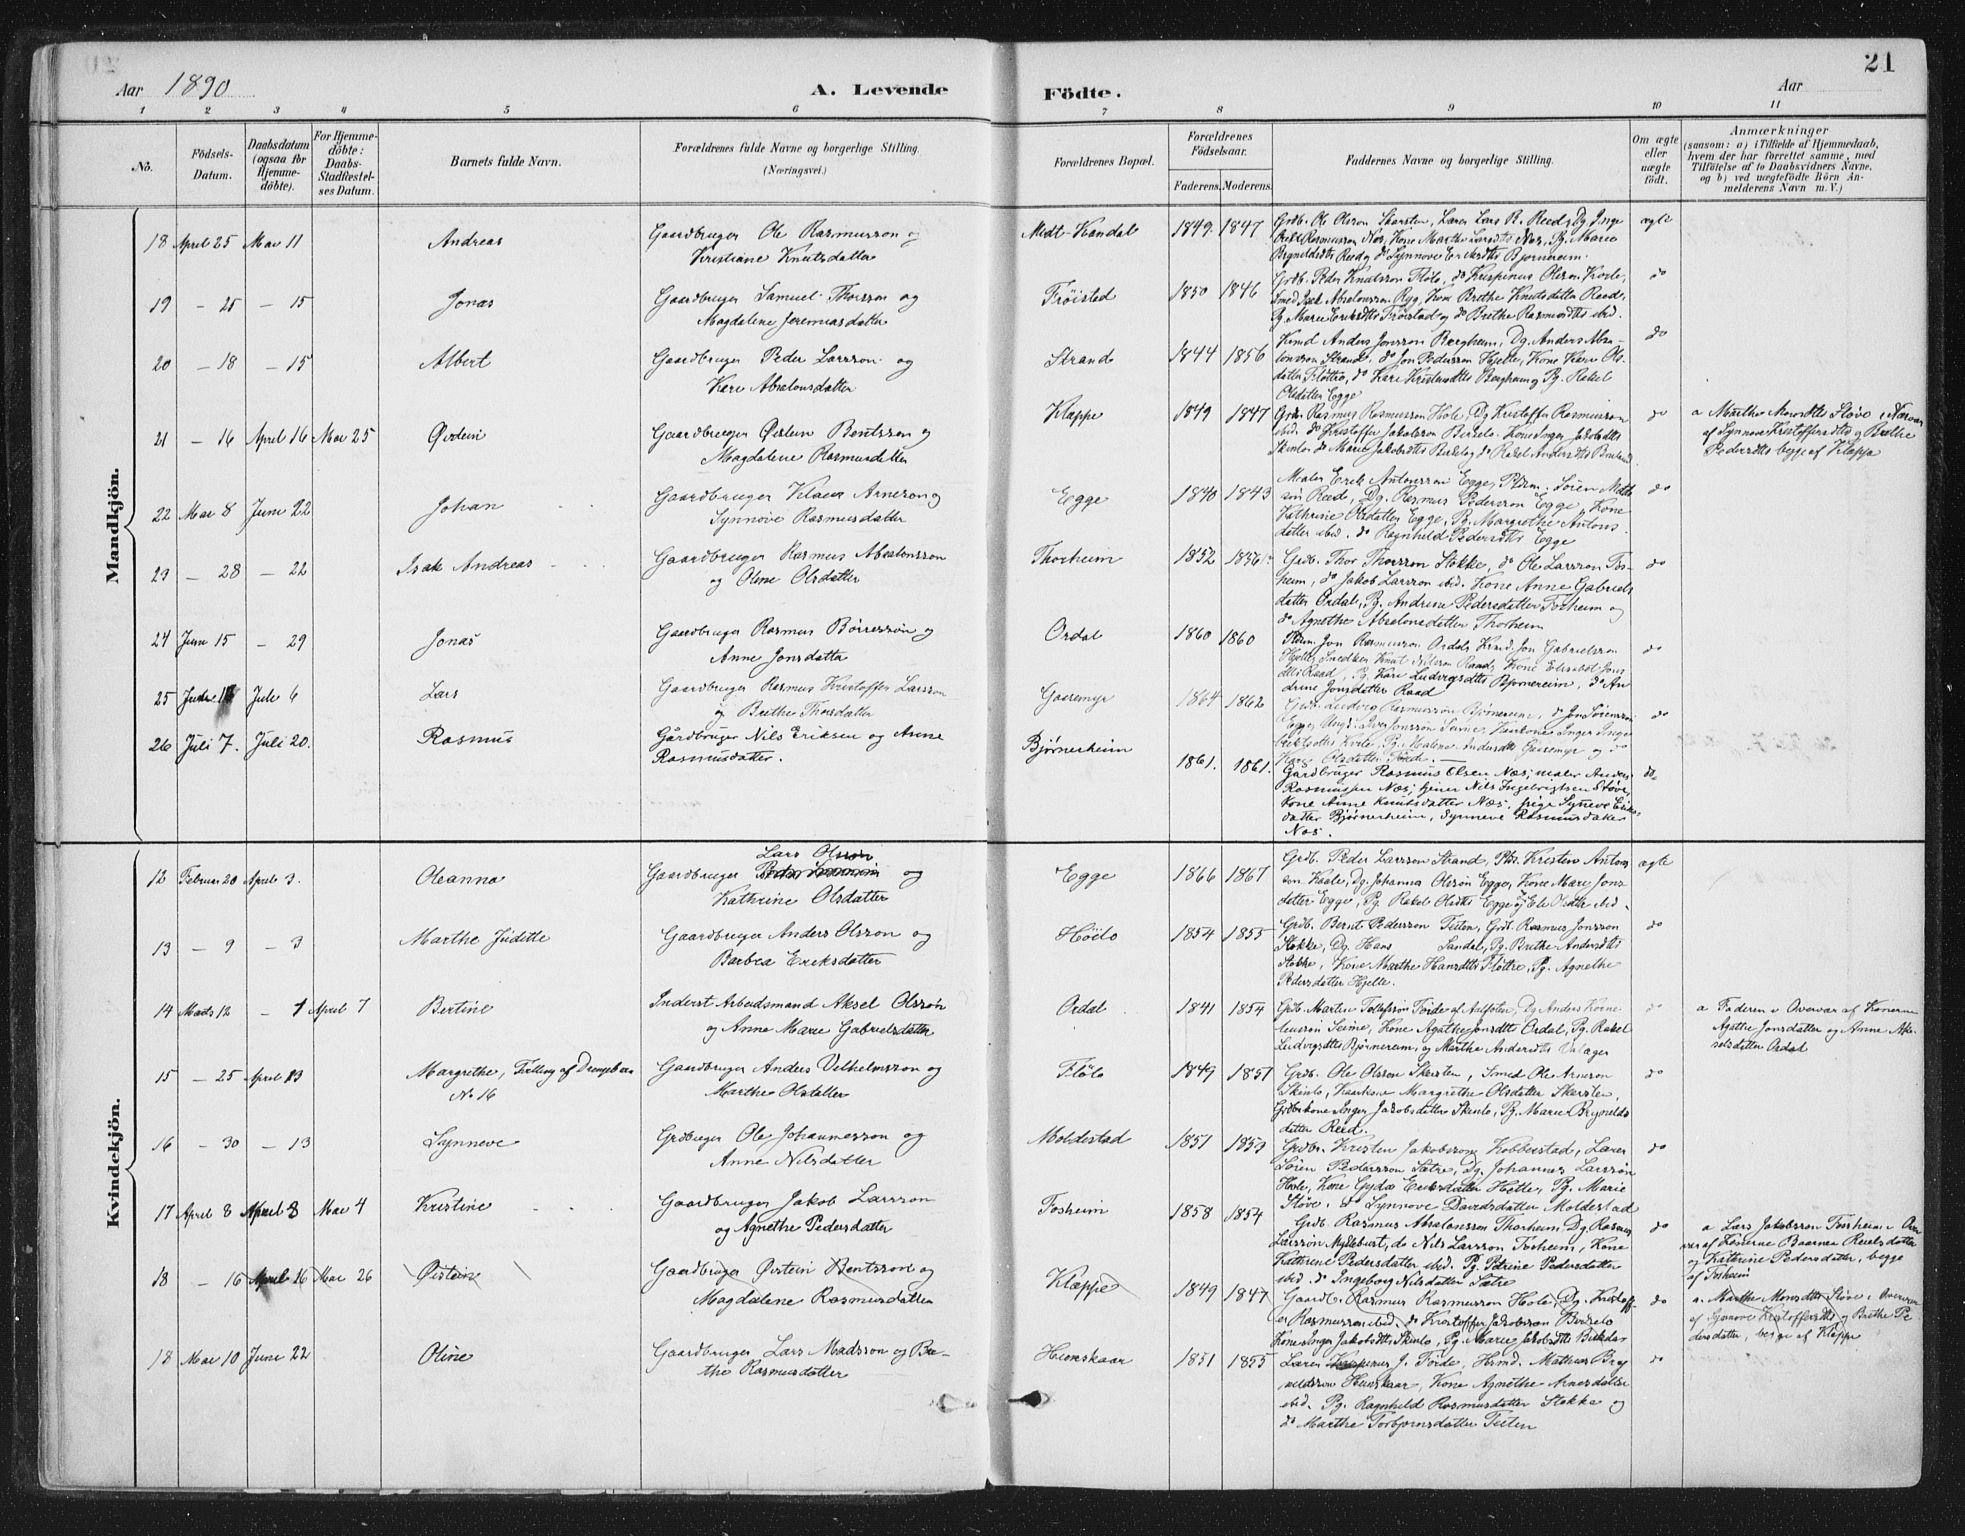 Aar 1890
A. Levende Födte.
Aar
21
1 2 3 4 5 6 7 8 9 10 11
No.
Födsels-Datum.
Daabsdatum (ogsaa for Hjemme-döbte).
For Hjemme-döbte: Daabs-Stadfæstel-ses Datum.
Barnets fulde Navn.
Forældrenes fulde Navne og borgerlige Stilling.
(Næringsvei.)
Forældrenes Bopæl.
Forældrenes Födselsaar.
Faderens. Moderens.
Faddernes Navne og borgerlige Stilling.
Om ægte eller uægte födt.
Anmærkninger
(saasom: a) i Tilfælde af Hjemmedaab,
hvem der har forrettet samme, med
Tilföielse af to Daabsvidners Navne,
og b) ved uægtefödte Börn An-
melderens Navn m. V.)
Mandkjön.
18 April 25 Mai 11 Andreas Gaardbruger Ole Rasmusson og
Kristiane Knutsdatter
Midt-Kandal 1849 1847 Grdb. Ole Olsson Skarsten, Lærer Lars R. Reed, Dg. Inge
ægte
19 – 25 – 15 Jonas Gaardbruger Samuel Thorsson og
Magdalene Jeremiasdatter
Frøistad 1850 1846 Grdb. Peder Knutsson Fløto, do Krispinus Olsson Kvile,
Smed Isak Absalonsson Ryg, Kone Brethe Knutsdatter Raad,
Pg. Marie Eriksdtr Frøistad og do Brethe Rasmusdtr ibid.
do
20 – 18 – 15 Albert Gaardbruger Peder Larsson og
Kari Absalonsdatter
Strand 1844 1856 Kmd Anders Jonsson Bergheim, Dg. Anders Absa-
lonsson Strand, do Jon Pedersson Hjelle, Kone Kari Ols-
datter Fløtto, do Kari Kristensdtr Bergheim og Pg. Rakel
Olsdatter Egge
do
21 – 16 April 16 Mai 25 Øistein Gaardbruger Øistein Bentsson og
Magdalene Rasmusdatter
Klappe 1849 1847 Grdb. Rasmus Rasmusson Hole, Dg Kristoffer Rasmusson
ibid. do Kristoffer Jakobsson Berkelo, Kone Inger Jakobsdtr
do
a Marthe Monsdtr Støve i Nærvær
af Synnøve Kristoffersdtr og Brethe
Pedersdtr begge af Klappe
22 Mai 8 June 22 Johan Gaardbruger Klaus Arnesson og
Synnøve Rasmusdatter
Egge 1840 1843 Maler Erik Antonsson Egge, Søren Mat-
son Reed, Dg. Rasmus Pedersson Egge, Kone
Kathrine Olsdatter Egge, Pg. Margrethe Antons-
datter ibid. do Ragnhild Pedersdtr Egge
do
23 – 28 – 22 Isak Andreas Gaardbruger Rasmus Absalonsson
og Oline Olsdatter
Thorheim 1852 1856 Grdb. Thor Thorsson Stokke, do Ole Larsson Fos-
heim, do Jakob Larsson ibid. Kone Anne Gabriels
datter Ordal, Pg. Andrine Pedersdatter Fosheim og
do Agnethe Absalonsdatter Thorheim
do
24 Juni 15 – 29 Jonas Gaardbruger Rasmus Børresson og
Anne Jonsdatter
Ordal 1860 1860 Jon Rasmusson Ordal, Kmd. Jon Gabrielsson
do
25 Juli 6 Lars Gaardbruger Rasmus Kristoffer Larsson
og Brethe Thorsdatter
Gaasemyr 1864 1862 Grdb. Ludvig Rasmusson Bjørnereim, do Jon Sørensson
do
26 Juli 7. Juli 20. Rasmus Gårdbruger Nils Eriksen og Anne
Rasmusdatter.
Bjørnerheim 1861. 1861. Gårdbruger Rasmus Olsen Næs, maler Anders
Rasmussen Næs, tjener Nils Ingebrigtsen Støve,
Kone Anne Knutsdatter Næs, pige Synneve Eriks-
datter Bjørnerheim, Synneve Rasmusdatter
Næs.
do.
Kvindekjön.
12 Februar 20 April 3. Oleanna Lars Olsson
Gaardbruger og
Kathrine Olsdatter
Egge 1866 1867 Grdb. Peder Larsson Strand, Kristen Antons
son Hole, Dg. Johannes Olsson Egge, Kone Mari Jons
datter Egge, Pg. Rakel Olsdtr Egge og Eli Olsdtr ibid.
ægte
13 – 9 – 3 Marthe Judithe Gaardbruger Anders Olsson og
Barbra Eriksdatter
Høilo 1854 1855 Grdb. Bernt Pedersson Teiten, Grdb. Rasmus Jonsson
Stokke, Dg. Hans Sandal, Pg. Brethe Andersdtr
Stokke, Kone Marthe Hansdtr Fløtto, Pg. Agnethe
Pedersdatter Hjelle.
do
14 Marts 12 – 7 April 7 Bertine Inderst Arbeidsmand Aksel Olsson
og Anne Marie Gabrielsdatter
Ordal 1841 1854 Grdb. Martin Tollefsson Førde af Aalfoten, Dg Anders Korne
liusson Seime, Kone Agathe Jonsdtr Ordal, Pg. Rakel
Ludvigsdtr Bjørnereim, og Marthe Andersdtr
do
a Faderen i Overvær af Konerne
Agathe Jonsdatter og Anne Ak-
selsdatter Ordal
15 – 25 April 13 Margrethe, Tvilling af Drengebarn
No 16
Gaardbruger Anders Velhelmsson og
Marthe Olsdatter
Fløto 1849 1857 Grdb. Ole Olsson Skarsten, Smed Ole Arneson
Skinlo, Kaarkone Margrethe Olsdatter Skarsten,
Grdbrkone Inger Jakobsdatter Skinlo, Pg. Marie Brynilds
datter Reed.
do
16 – 30 – 13 Synneve Grdbruger Ole Johannesson og
Anne Nilsdatter
Moldestad 1851 1853 Grdbr. Kristen Jakobsson Kobberstad, Lærer
Søren Pedersson Sætre, Dg. Johannes Larsson
Hole, Kone Gyda Eriksdatter Hjelle, Pg. Marie
Støve, do Synnøve Davidsdatter Moldestad
do
17 April 8 April 8 Mai 4 Kristine Gaardbruger Jakob Larsson
og Agnethe Pedersdatter
Fosheim 1858 1854 Grdb. Rasmus Absalonsson Thorheim, Dg. Rasmus
Larsson Myklebust, do Nils Larsson Fosheim, Kone
Kathrine Pedersdatter ibid. Pg. Petrine Pedersdatter
ibid. do Ingeborg Nilsdatter Sætre
do
a Lars Jakobsson Fosheim i Over
vær af Konerne Reielsdatter
og Kathrine Pedersdatter, begge
af Fosheim
18 – 16 April 16 Mai 26 Øistein Gaardbruger Øistein Bentsson og
Magdalene Rasmusdatter
Klappe 1849 1847 Gaardb. Rasmus Rasmusson Hole, Dg. Kristoff-
er Rasmusson ibid. do Kristoffer Jakobsson Berkelo
Kone Inger Jakobsdtr Skinlo, Pg. Marie Jakobsdtr
do
a. Marthe Monsdtr Støve i Overvær
af Synnøve Kristoffersdtr og Brethe Pe-
dersdatter, begge af Klappe
18 Mai 10 June 22 Oline Gaardbruger Lars Madsson og Bre-
the Rasmusdatter
Hunskaar 1851 1855 Lærer Krispinus J. Førde, Hsmd. Mathias Bry
nildsson Hunskaar, Kone Agnethe Arnesdatter
ibid. Pg. Ragnhild Rasmusdatter Stokke og
do Marthe Torbjørnsdatter Teiten
do